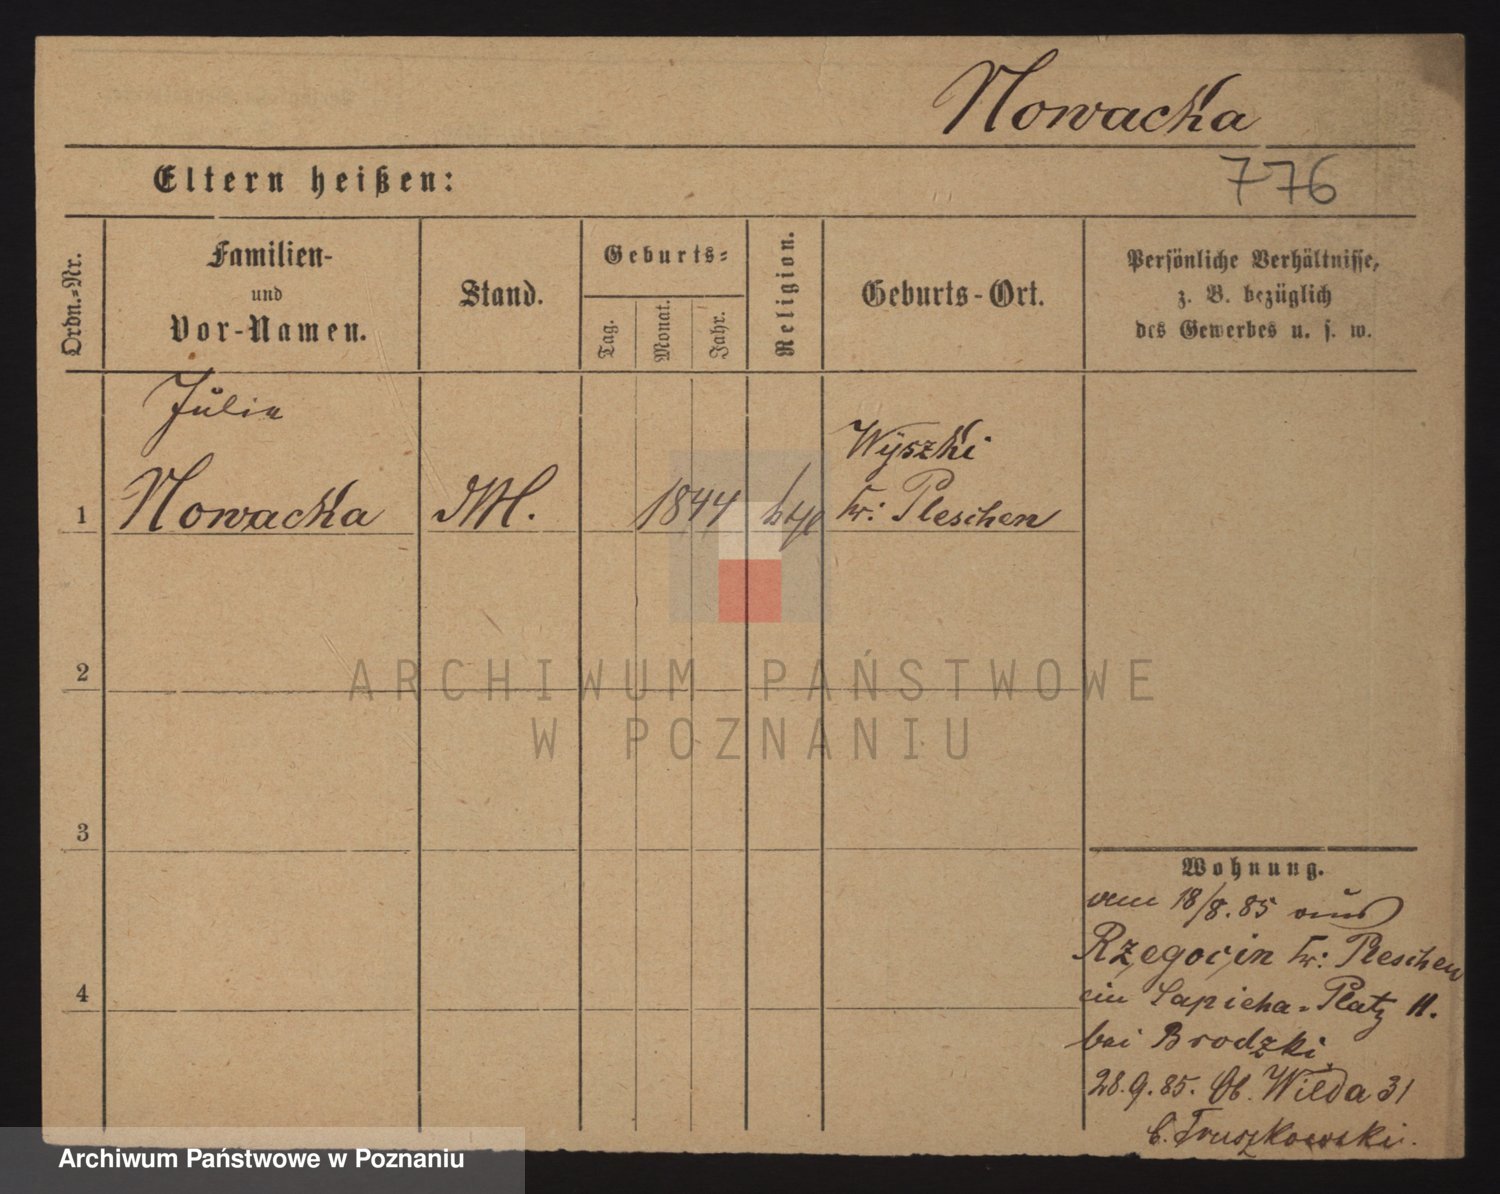 Nowacka
776
Eltern heißen:
Ordn.-Nr.
Familien-
und
Vor-Namen.
Stand.
Geburts-
Tag.
Monat.
Jahr.
Religion.
Geburts-Ort.
Persönliche Verhältnisse,
z. B. bezüglich
des Gewerbes u. s. w.
Julia
Nowacka
M.
1844
Wyszki
Kr: Pleschen
1
2
3
4
Wohnung.
vom 18/8.85 aus
Rzegocin Kr: Pleschen
ein Sapieha-Platz 11.
bei Brodzki
28.9.85. Ob. Wilda 31
b. Truszkowski.
ARCHIWUM PAŃSTWOWE
W POZNANIU
Archiwum Państwowe w Poznaniu